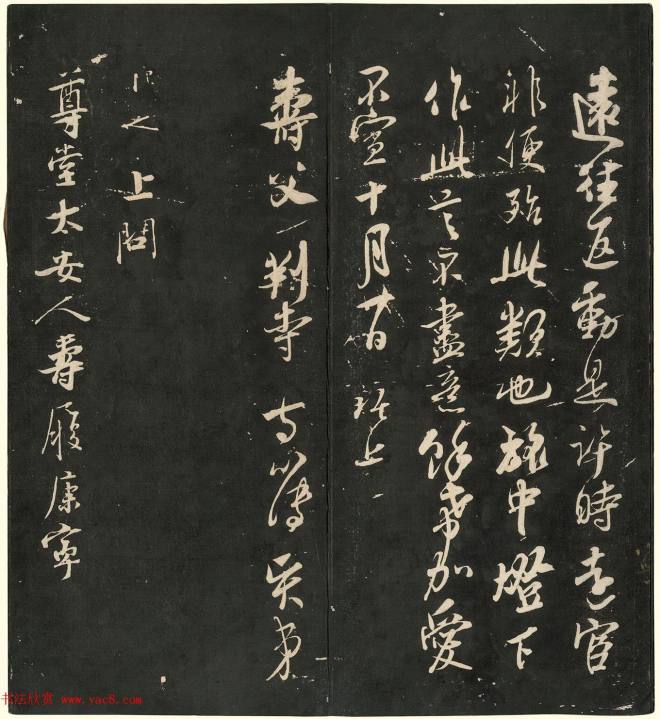 遠往返動是許時遠官
非便殆此類也旅中燈下
作此盡意餘希加愛
不宣十月上
壽父判寺
上問
尊堂太安人壽履康寧
书法欣赏 www.yac8.com